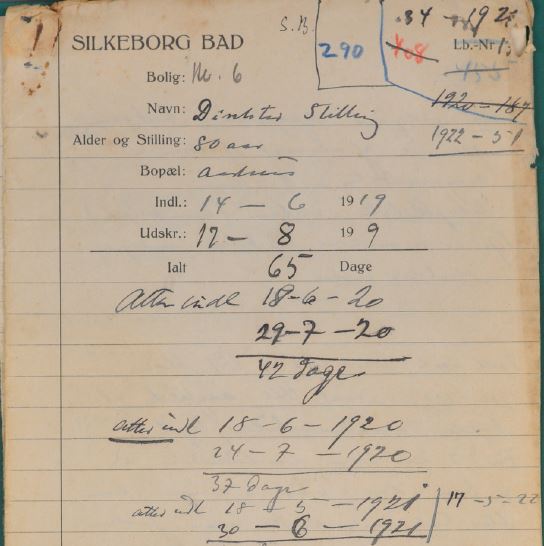 S.B.
34 - 1921
SILKEBORG BAD
290
408
Lb.-Nr
455
Bolig: No. 6
1920 - 187
Navn: Direktør Stilling
1922 - 51
Alder og Stilling: 80 aar
Bopæl: Aarhus
Indl.: 14 - 6 1919
Udskr.: 17 - 8 19 9
Ialt 65 Dage
Atter indl 18-6-20
29-7-20
42 dage
atter indl 18-6-1920
24-7-1920
37 dage
atter indl 18-5-1921 17-5-22
30-6-1921